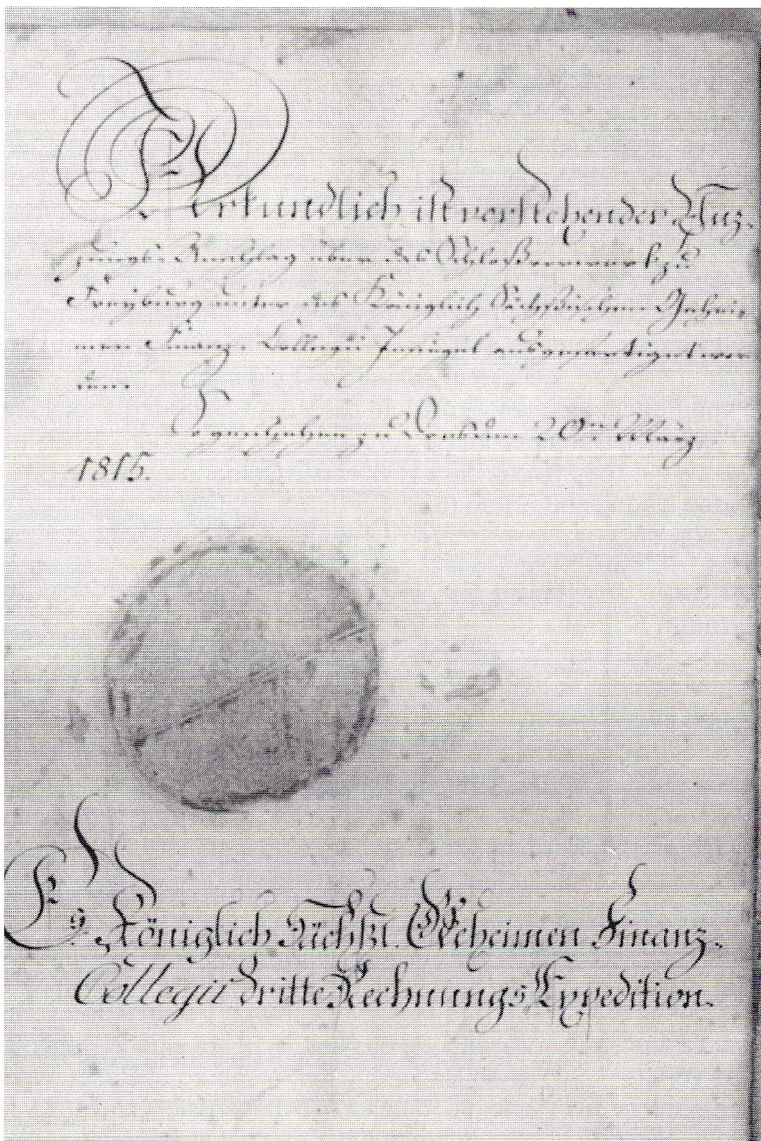 Urkundlich ist vorstehender Nuz-
zungs-Anschlag über das Schloßvorwerk zu
Freyburg unter des Königlich Sächsischen Gehei-
men Finanz-Collegii Innsiegel ausgefertiget wor-
den.
So geschehen zu Dresden 20n. März
1815.
Königlich Sächßl. Geheimen Finanz-
Collegii dritte Rechnungs Expedition.